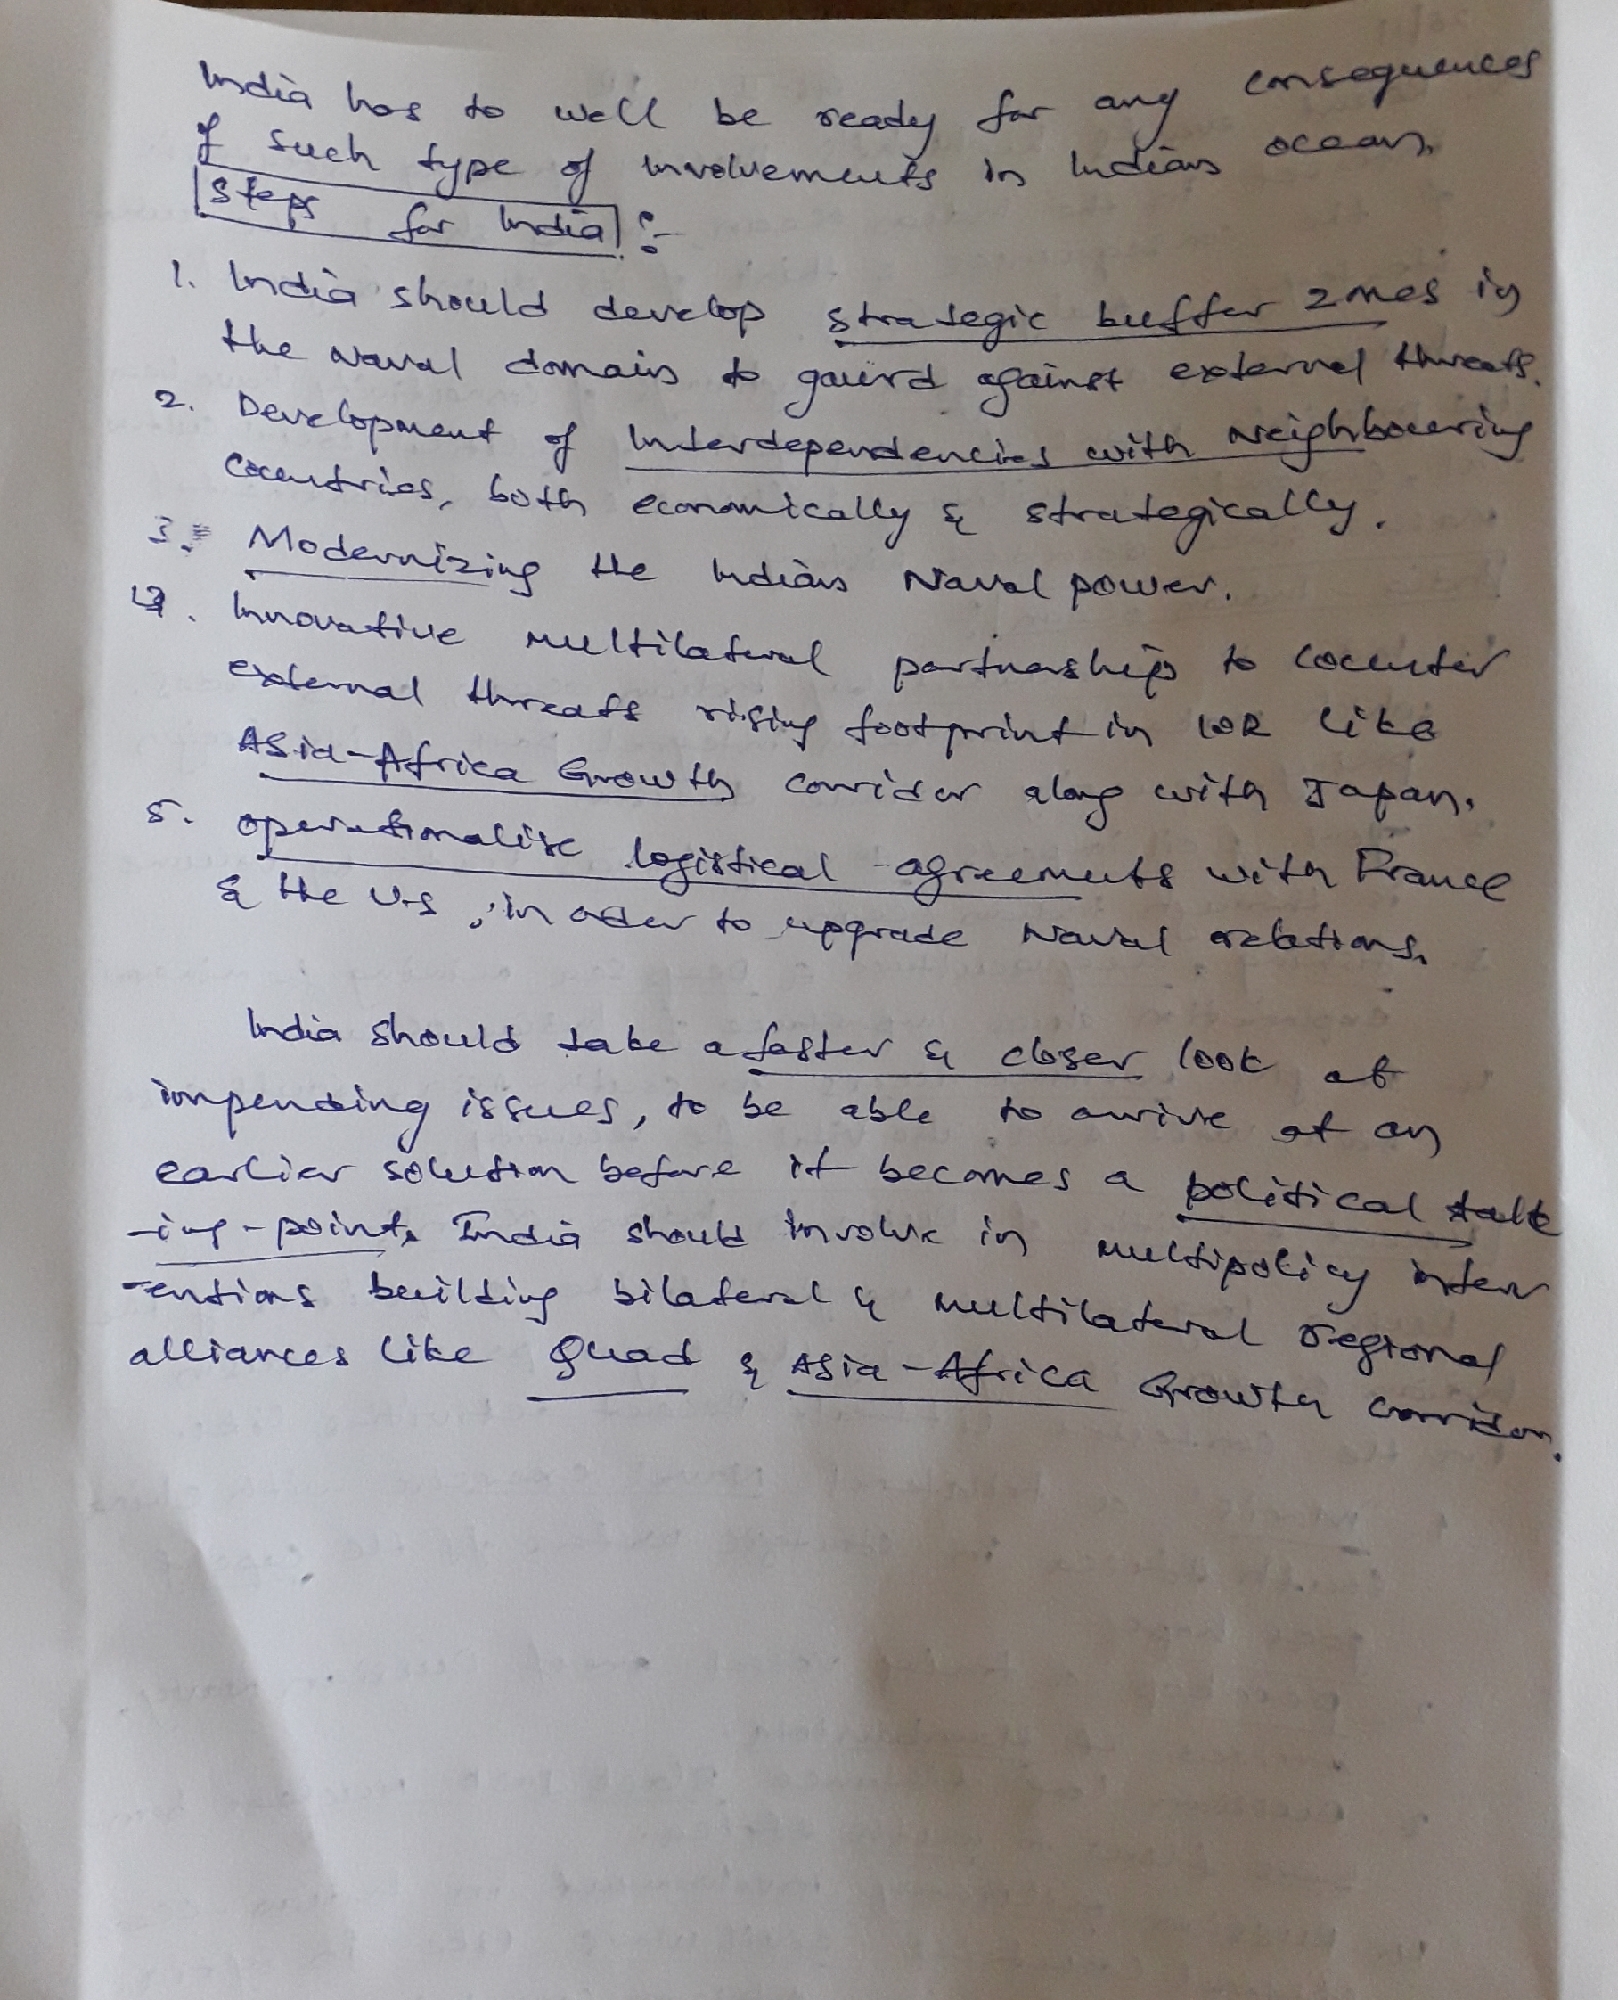 India has to well be ready for any consequences
of such type of involvements in Indian ocean.
Steps for India :-
1. India should develop strategic buffer zones in
the naval domain to gaurd against external threats.
2. Development of Interdependencies with Neighbouring
Countries, both economically & strategically.
3. Modernizing the Indian Naval power.
4. Innovative multilateral partnership to counter
external threats rising footprint in IOR like
Asia-Africa Growth corridor along with Japan.
5. operationalise logistical agreements with France
& the U.S, in order to upgrade Naval relations.
India should take a faster & closer look at
impending issues, to be able to arrive at an
earlier solution before it becomes a political talk
-ing-point. India should involve in multipolicy interv
-entions building bilateral & multilateral regional
alliances like Quad & Asia-Africa Growth corridor.